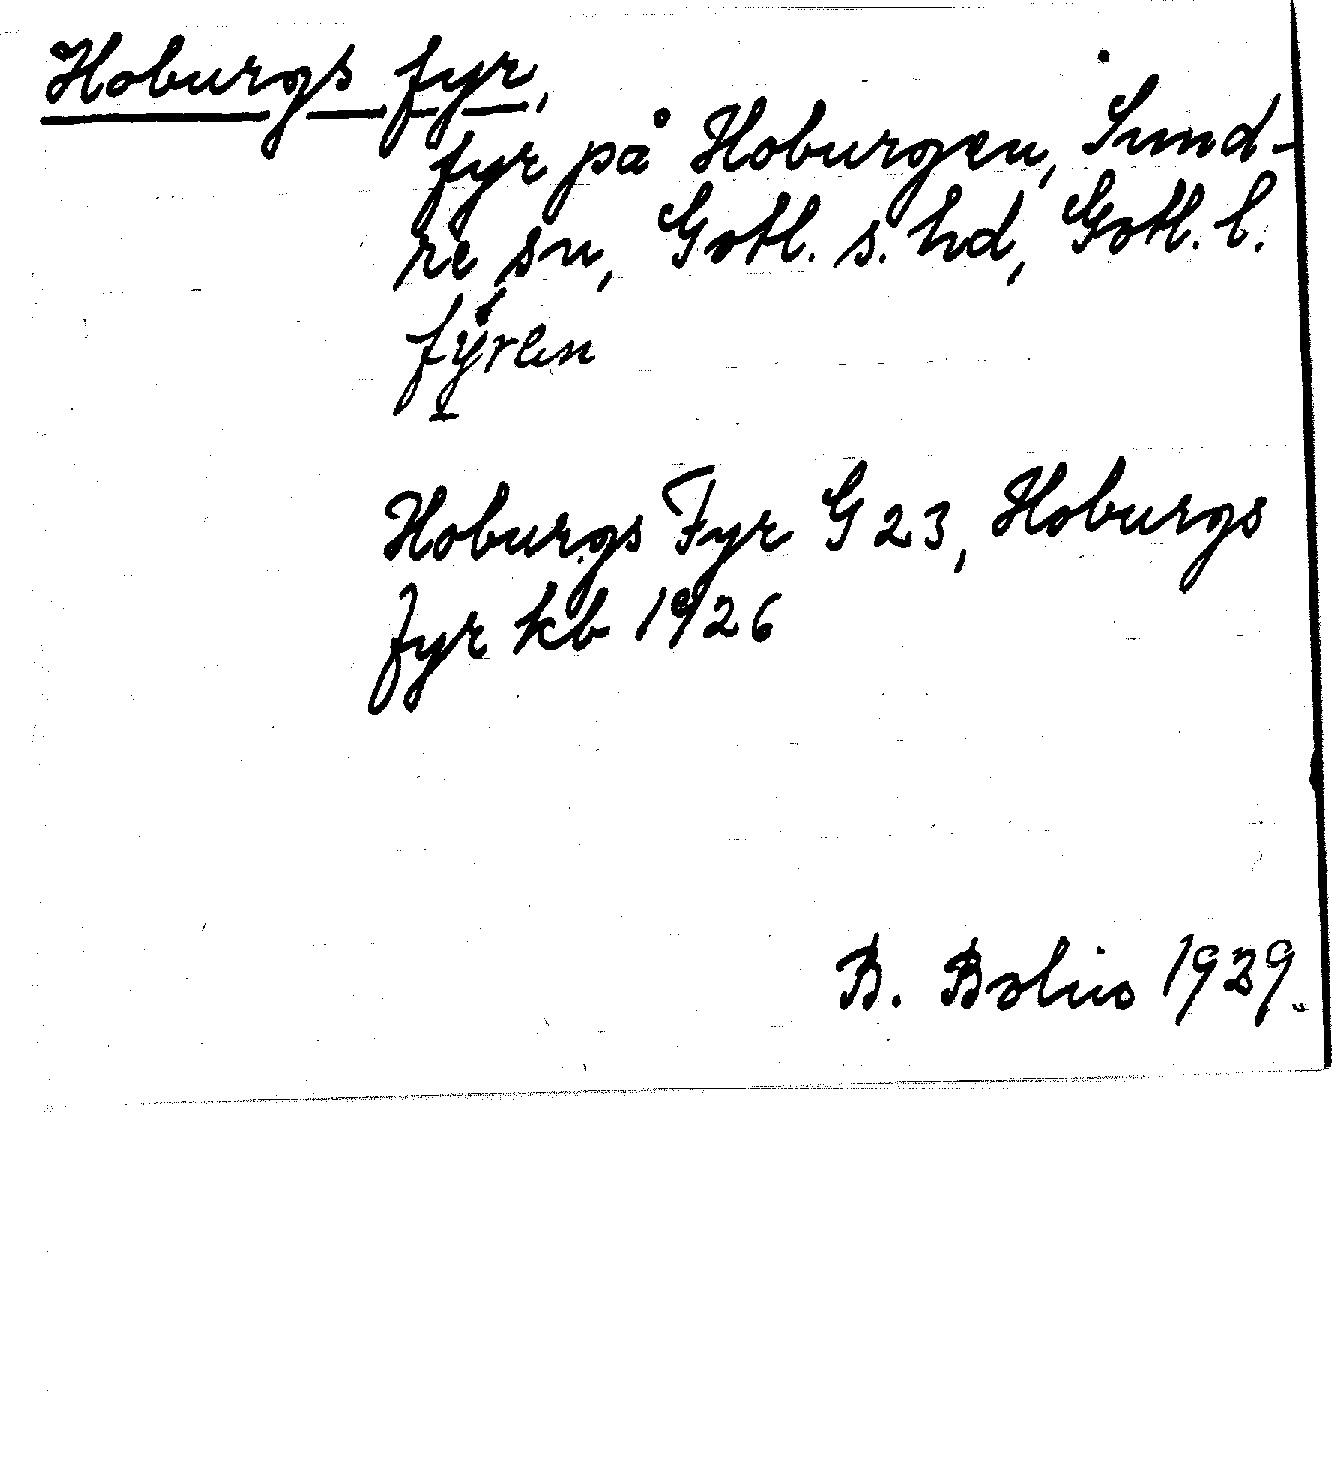 Hoburgs fyr,
fyr på Hoburgen, Sund-
re sn, Gotl. s. hd, Gotl. l.
fýren
Hoburgs Fyr G 23, Hoburgs
fyr kb 1926
B. Bolin 1929.